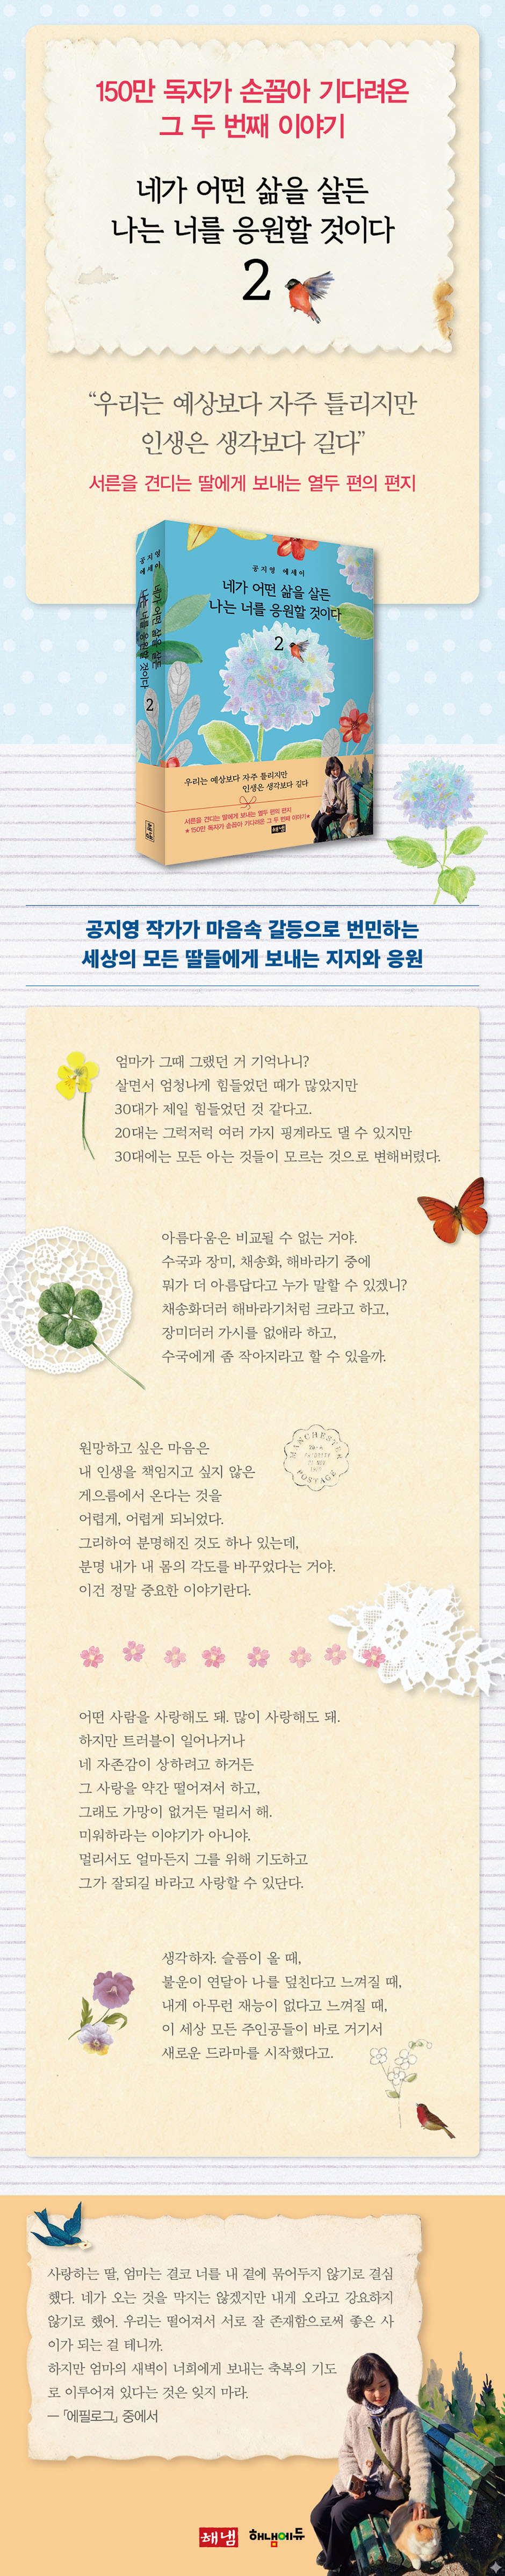 150만 독자가 손꼽아 기다려온
그 두 번째 이야기
네가 어떤 삶을 살든
나는 너를 응원할 것이다
2
“우리는 예상보다 자주 틀리지만
인생은 생각보다 길다”
서른을 견디는 딸에게 보내는 열두 편의 편지
공지영
에세이
네가 어떤 삶을 살든
나는 너를 응원할 것이다
2
해냄
공지영 에세이
네가 어떤 삶을 살든
나는 너를 응원할 것이다
2
우리는 예상보다 자주 틀리지만
인생은 생각보다 길다
서른을 견디는 딸에게 보내는 열두 편의 편지
★150만 독자가 손꼽아 기다려온 그 두 번째 이야기★
해냄
공지영 작가가 마음속 갈등으로 번민하는
세상의 모든 딸들에게 보내는 지지와 응원
엄마가 그때 그랬던 거 기억나니?
살면서 엄청나게 힘들었던 때가 많았지만
30대가 제일 힘들었던 것 같다고.
20대는 그럭저럭 여러 가지 핑계라도 댈 수 있지만
30대에는 모든 아는 것들이 모르는 것으로 변해버렸다.
아름다움은 비교될 수 없는 거야.
수국과 장미, 채송화, 해바라기 중에
뭐가 더 아름답다고 누가 말할 수 있겠니?
채송화더러 해바라기처럼 크라고 하고,
장미더러 가시를 없애라 하고,
수국에게 좀 작아지라고 할 수 있을까.
MANCHESTER
POSTAGE
원망하고 싶은 마음은
내 인생을 책임지고 싶지 않은
게으름에서 온다는 것을
어렵게, 어렵게 되뇌었다.
그리하여 분명해진 것도 하나 있는데,
분명 내가 내 몸의 각도를 바꾸었다는 거야.
이건 정말 중요한 이야기란다.
어떤 사람을 사랑해도 돼. 많이 사랑해도 돼.
하지만 트러블이 일어나거나
네 자존감이 상하려고 하거든
그 사랑을 약간 떨어져서 하고,
그래도 가망이 없거든 멀리서 해.
미워하라는 이야기가 아니야.
멀리서도 얼마든지 그를 위해 기도하고
그가 잘되길 바라고 사랑할 수 있단다.
생각하자. 슬픔이 올 때,
불운이 연달아 나를 덮친다고 느껴질 때,
내게 아무런 재능이 없다고 느껴질 때,
이 세상 모든 주인공들이 바로 거기서
새로운 드라마를 시작했다고.
사랑하는 딸, 엄마는 결코 너를 내 곁에 묶어두지 않기로 결심
했다. 네가 오는 것을 막지는 않겠지만 내게 오라고 강요하지
않기로 했어. 우리는 떨어져서 서로 잘 존재함으로써 좋은 사
이가 되는 걸 테니까.
하지만 엄마의 새벽이 너희에게 보내는 축복의 기도
로 이루어져 있다는 것은 잊지 마라.
─ 「에필로그」 중에서
해냄
해냄에듀